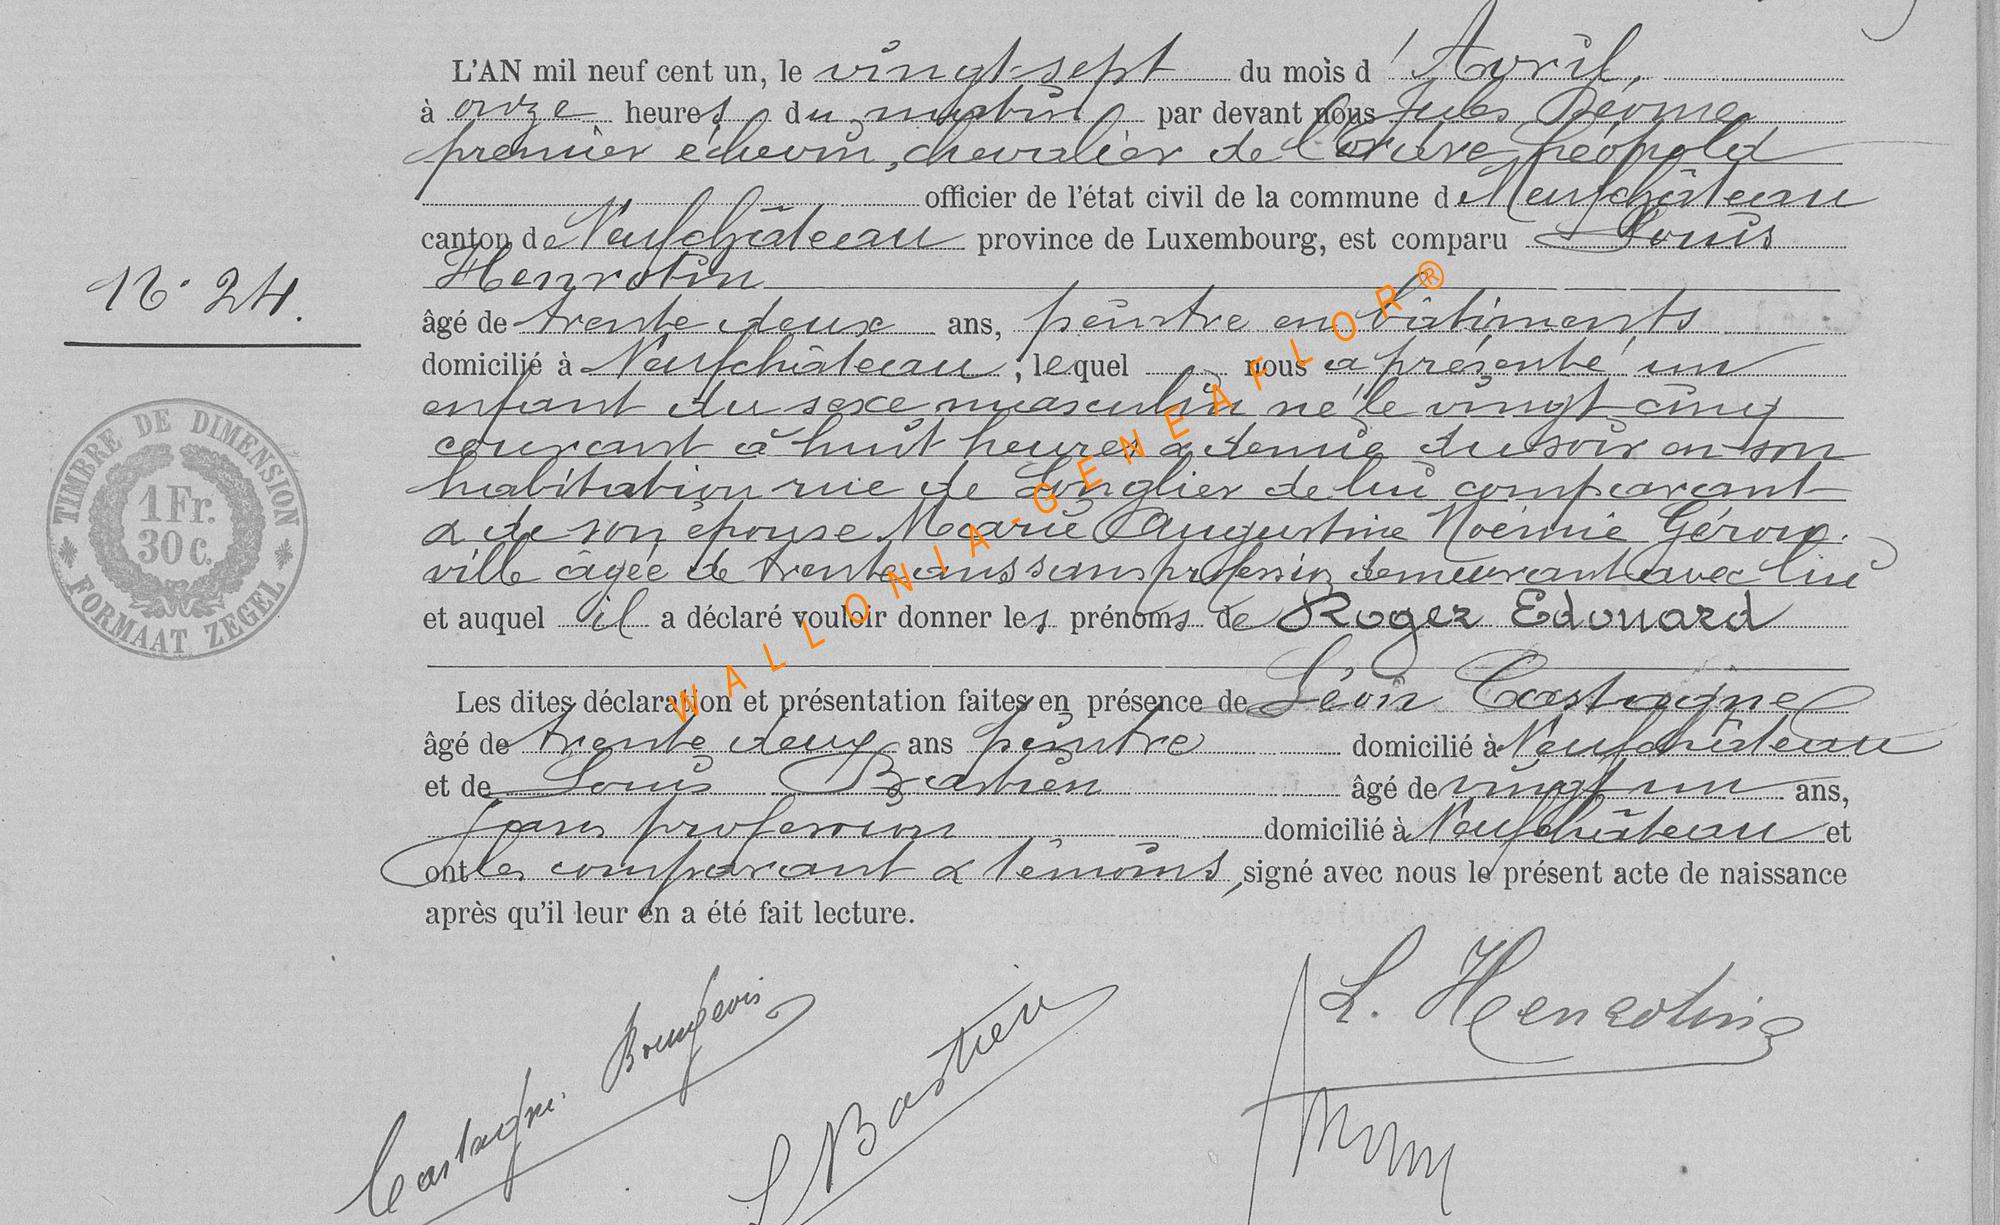 L'AN mil neuf cent un, le vingt-sept du mois d'Avril,
à onze heures du matin par devant nous Jules
premier échevin, chevalier de l'ordre Léopold
officier de l'état civil de la commune de Neufchâteau
canton de Neufchâteau province de Luxembourg, est comparu Louis
Henrotin
N° 24.
âgé de trente deux ans, peintre en bâtiments
domicilié à Neufchâteau, lequel nous a présenté un
enfant du sexe masculin né le vingt cinq
courant à huit heures & demie du soir en son
habitation rue de Longlier de lui comparant
& de son épouse Marie Augustine Noémie Gérou-
ville âgée de trente ans sans profession demeurant avec lui
et auquel il a déclaré vouloir donner les prénoms de Roger Edouard
Les dites déclaration et présentation faites en présence de Léon Castagne
âgé de trente deux ans peintre domicilié à Neufchâteau
et de Louis Bastien âgé de vingt un ans,
sans profession domicilié à Neufchâteau et
ont les comparant & témoins, signé avec nous le présent acte de naissance
après qu'il leur en a été fait lecture.
TIMBRE DE DIMENSION
1 Fr.
30 c.
FORMAAT ZEGEL
WALLONIA-GENEAFLOR®
L. Henrotin
Castagne. Bourgeois
L Bastien